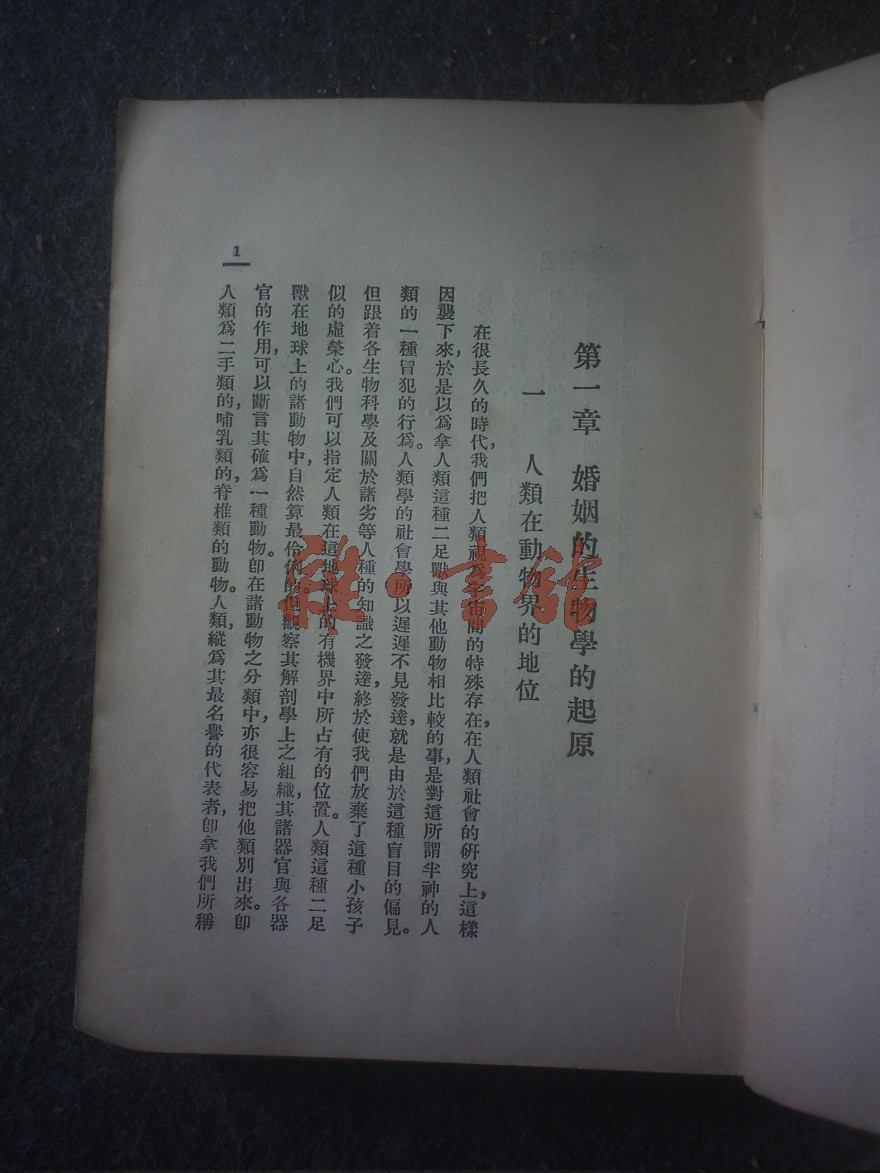 第一章 婚姻的生物學的起原
一 人類在動物界的地位
在很長久的時代，我們把人類視爲宇宙間的特殊存在，在人類社會的研究上，這樣
因襲下來，於是以爲拿人類這種二足獸與其他動物相比較的事，是對這所謂半神的人
類的一種冒犯的行爲。人類學的社會學所以遲遲不見發達，就是由於這種盲目的偏見。
但跟着各生物科學及關於諸劣等人種的知識之發達，終於使我們放棄了這種小孩子
似的虛榮心。我們可以指定人類在這地球上的有機界中所占有的位置。人類這種二足
獸在地球上的諸動物中，自然算最伶俐的，但觀察其解剖學上之組織，其諸器官與各器
官的作用，可以斷言其確爲一種動物。卽在諸動物之分類中，亦很容易把他類別出來。卽
人類爲二手類的，哺乳類的，脊椎類的動物。人類，縱爲其最名譽的代表者，卽拿我們所稱
1
書館